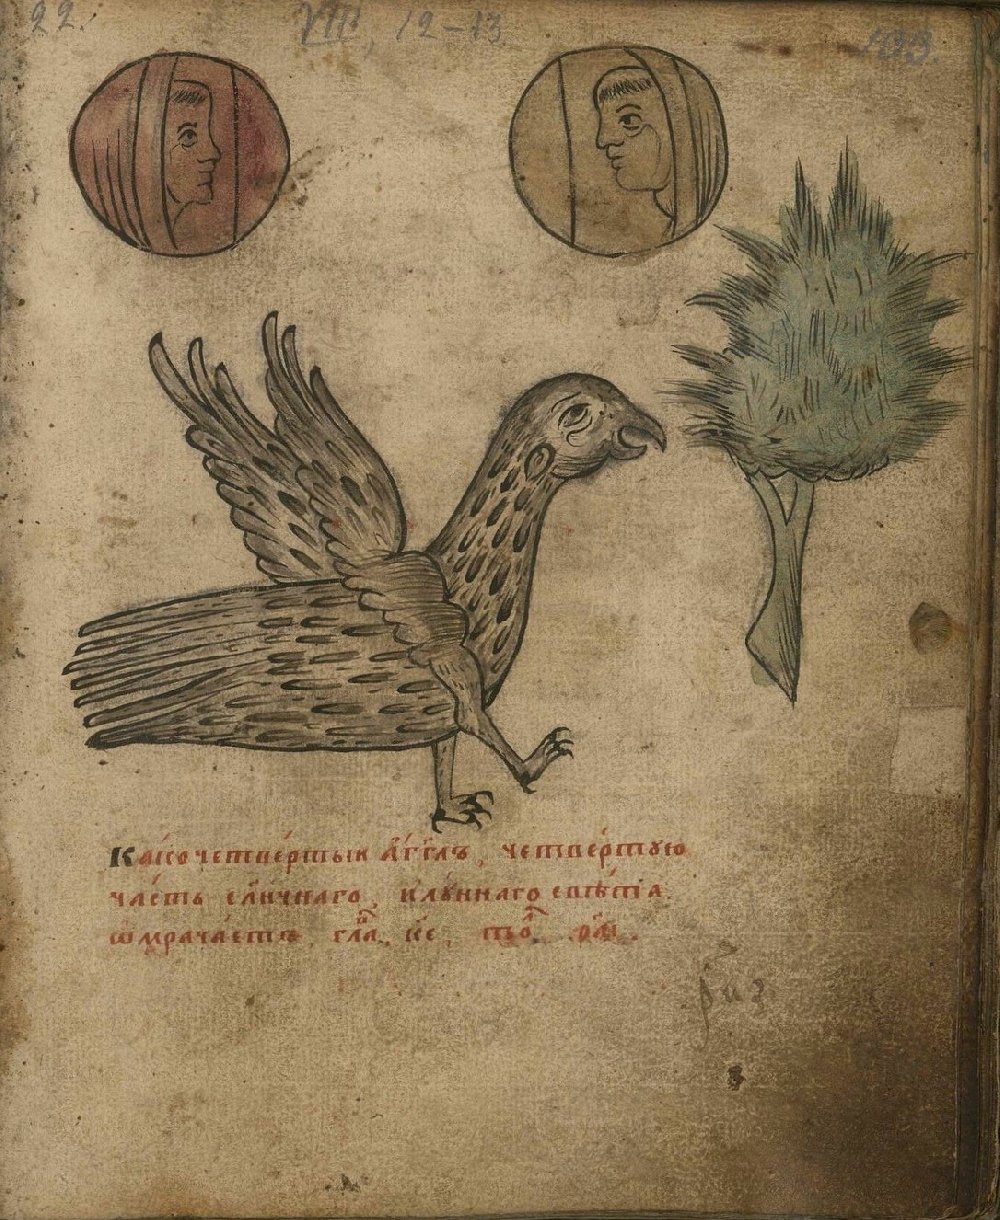 22.
VIII, 12–13
Како четвертыи а҆гг҃лъ, четвертую
часть сл҃нчнаго, и лу́ннаго свѣтїа
ѡмрача́етъ гла҃ к҃є,